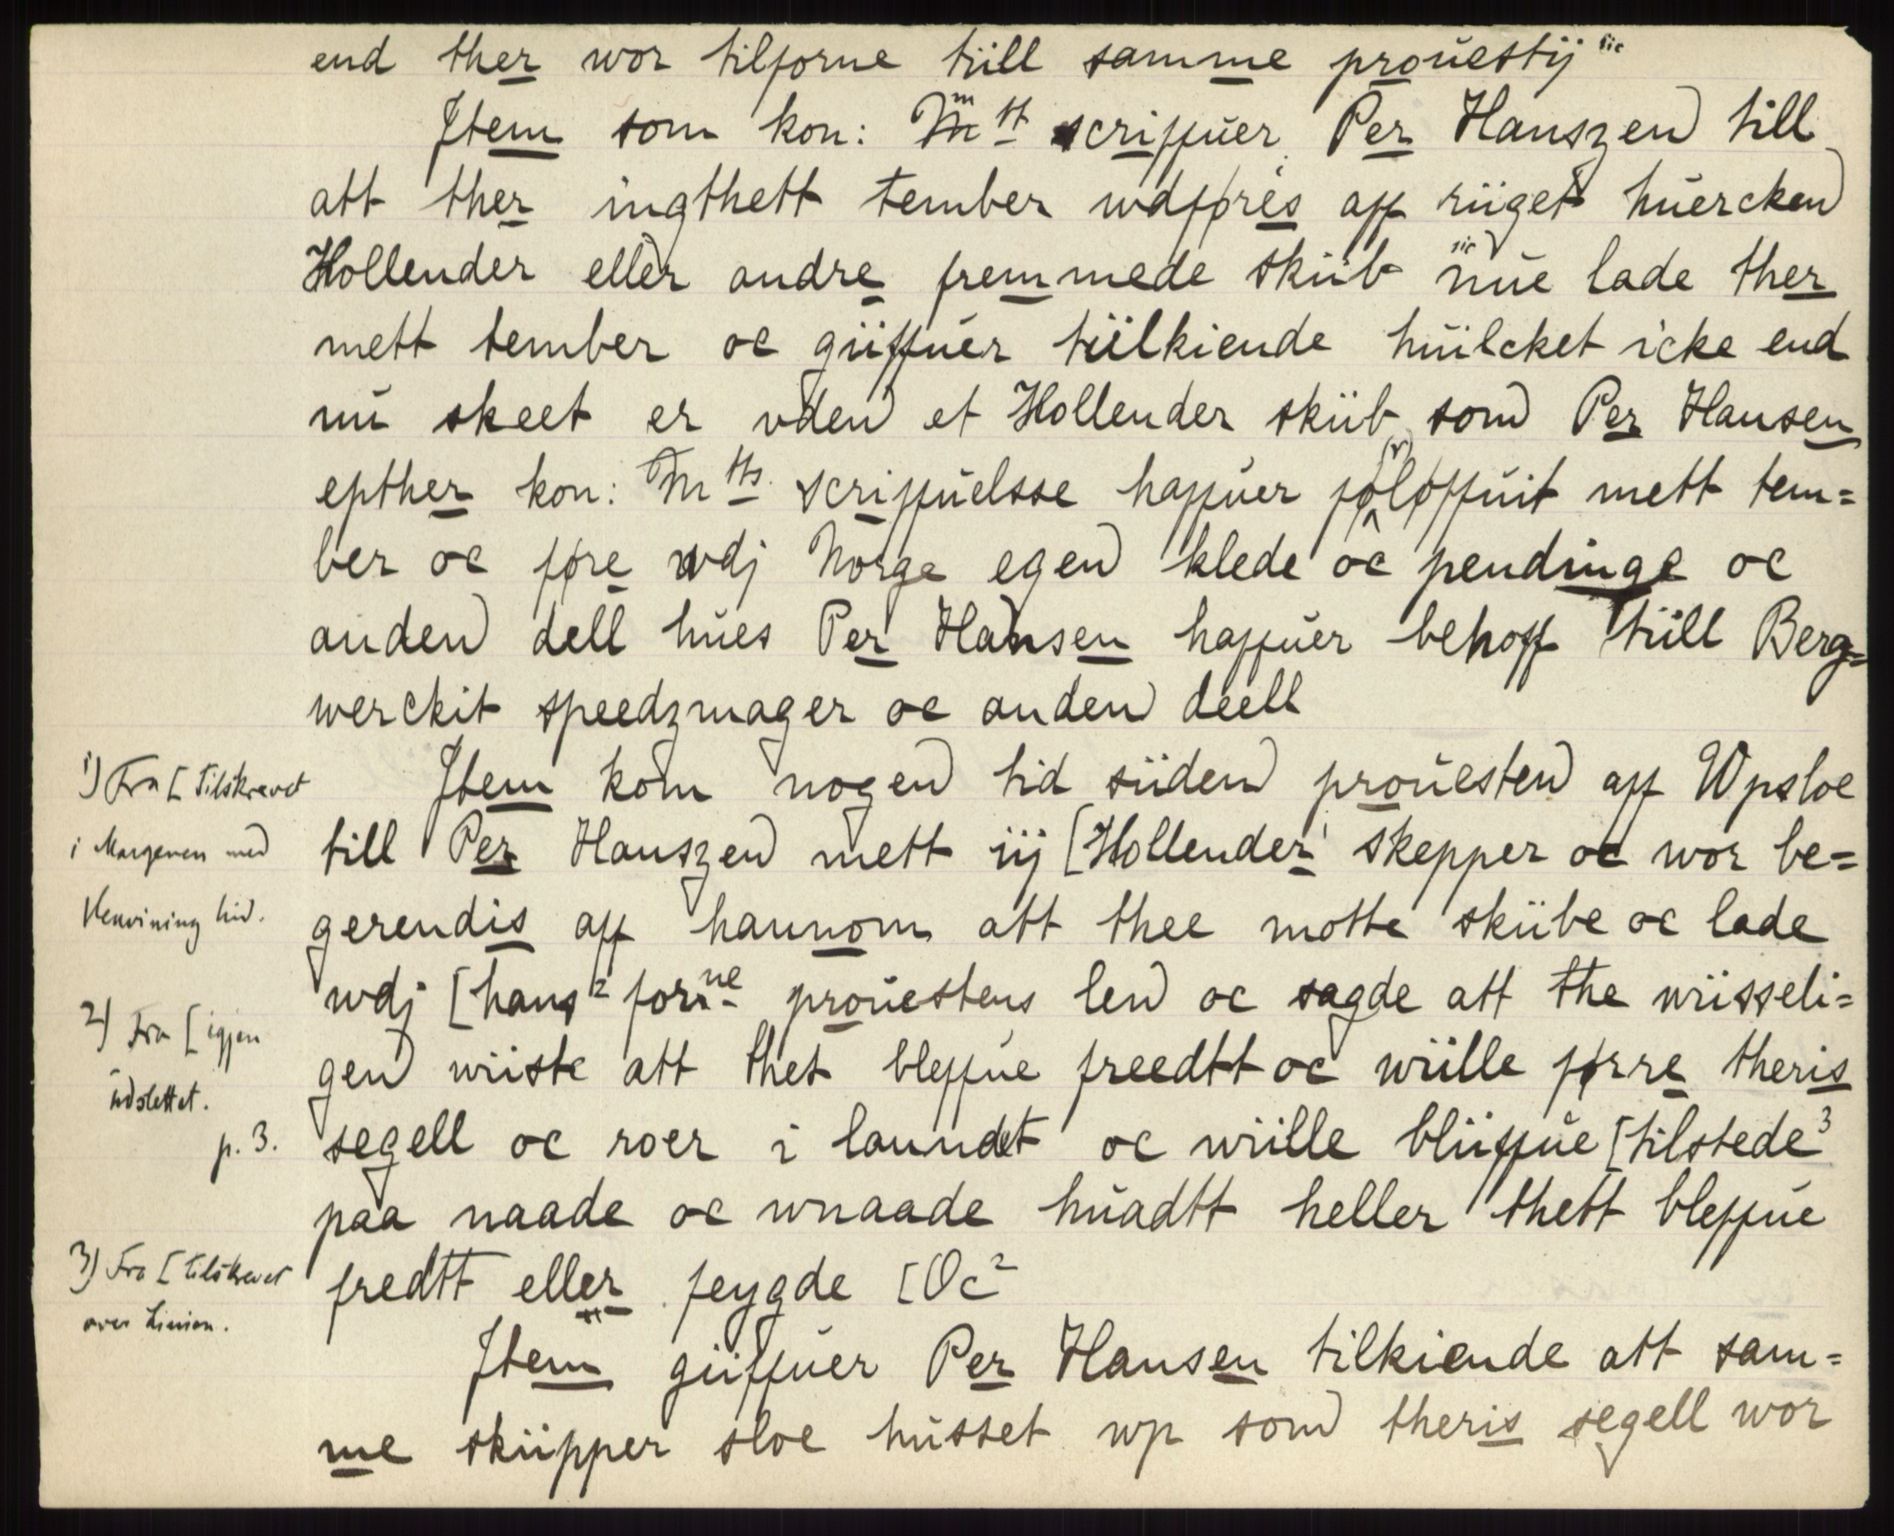 end ther wor tilforne tiill samme prouestij sic
Jtem som kon: Mtt scriffuer Per Hanszen till
att ther ingthett tember wdføres aff riiget huercken
Hollender eller andre fremmede skiib nue sic lade ther
mett tember oc giiffuer tiilkiende huilcket icke end
nu skeet er vden et Hollender skiib som Per Hansen
epther kon: Mtts scriffuelsse haffuer fo(r)løffuit mett tem=
ber oc føre wdj Norge egen klede oc pendinge oc
anden dell hues Per Hansen haffuer behoff tiill Berg=
werckit speedzmager oc anden deell
Jtem kom nogen tid siiden prouesten aff Wpsloe
till Per Hanszen mett iij [Hollender¹ skepper oc wor be=
gerendis aff hannom att thee motte skiibe oc lade
wdj [hans² forne prouestens len oc sagde att the wiisseli=
gen wiiste att thet bleffue freedtt oc wiille førre theris
segell oc roer i laundet oc wiille bliiffue [tilstede³
paa naade oc wnaade huadtt heller thett bleffue
fredtt eller feygde [Oc²
Jtem giiffuer Per Hansen tilkiende att sam=
me skiipper sloe husset wp som theris segell wor
1) Fra [ tilskrevet
i Margenen med
Henvisning hid.
2) Fra [ igjen
udslettet.
p. 3.
3) Fra [ tilskrevet
over Linien.